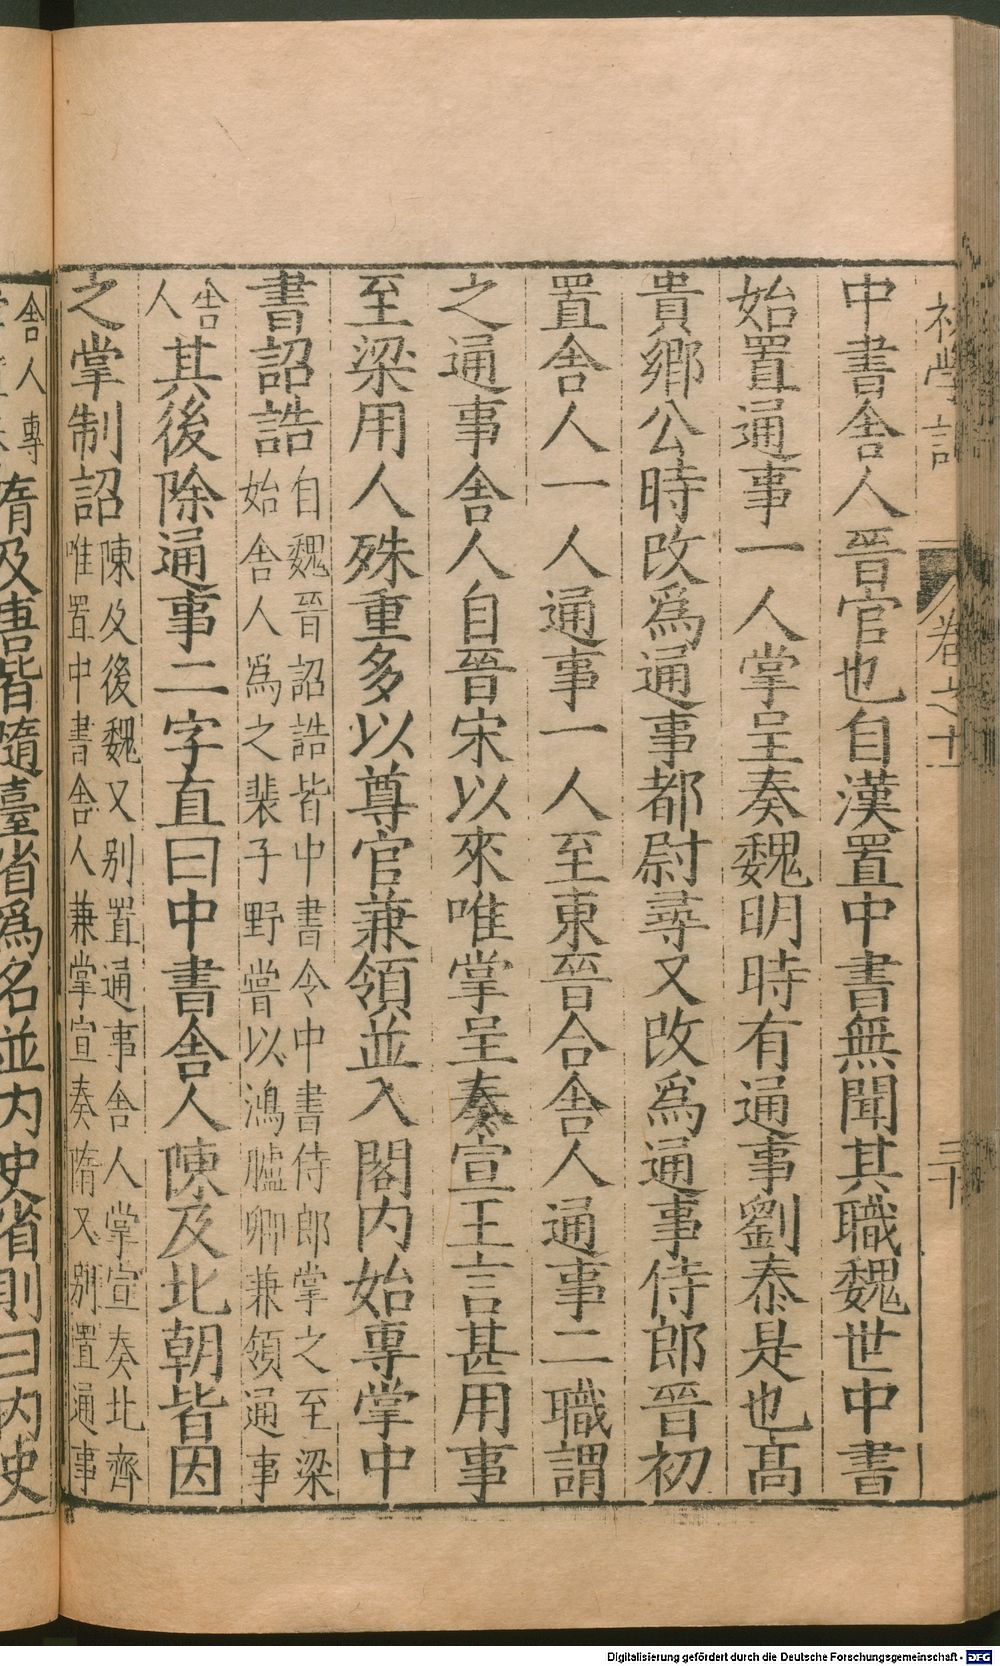 初學記 卷之十一 三十
中書舍人晉官也自漢置中書無聞其職魏世中書
始置通事一人掌呈奏魏明時有通事劉泰是也髙
貴鄉公時改爲通事都尉尋又改爲通事侍郎晉初
置舍人一人通事一人至東晉合舍人通事二職謂
之通事舍人自晉宋以來唯掌呈奏宣王言甚用事
至梁用人殊重多以尊官兼領並入閣内始專掌中
書詔誥自魏晉詔誥皆中書令中書侍郎掌之至梁始舍人爲之裴子野嘗以鴻臚卿兼領通事
舍人其後除通事二字直曰中書舍人陳及北朝皆因
之掌制詔陳及後魏又别置通事舍人掌宣奏北齊唯置中書舍人兼掌宣奏隋又别置通事
舍人專隋及唐皆隨臺省爲名並内史省則曰内史
Digitalisierung gefördert durch die Deutsche Forschungsgemeinschaft - DFG